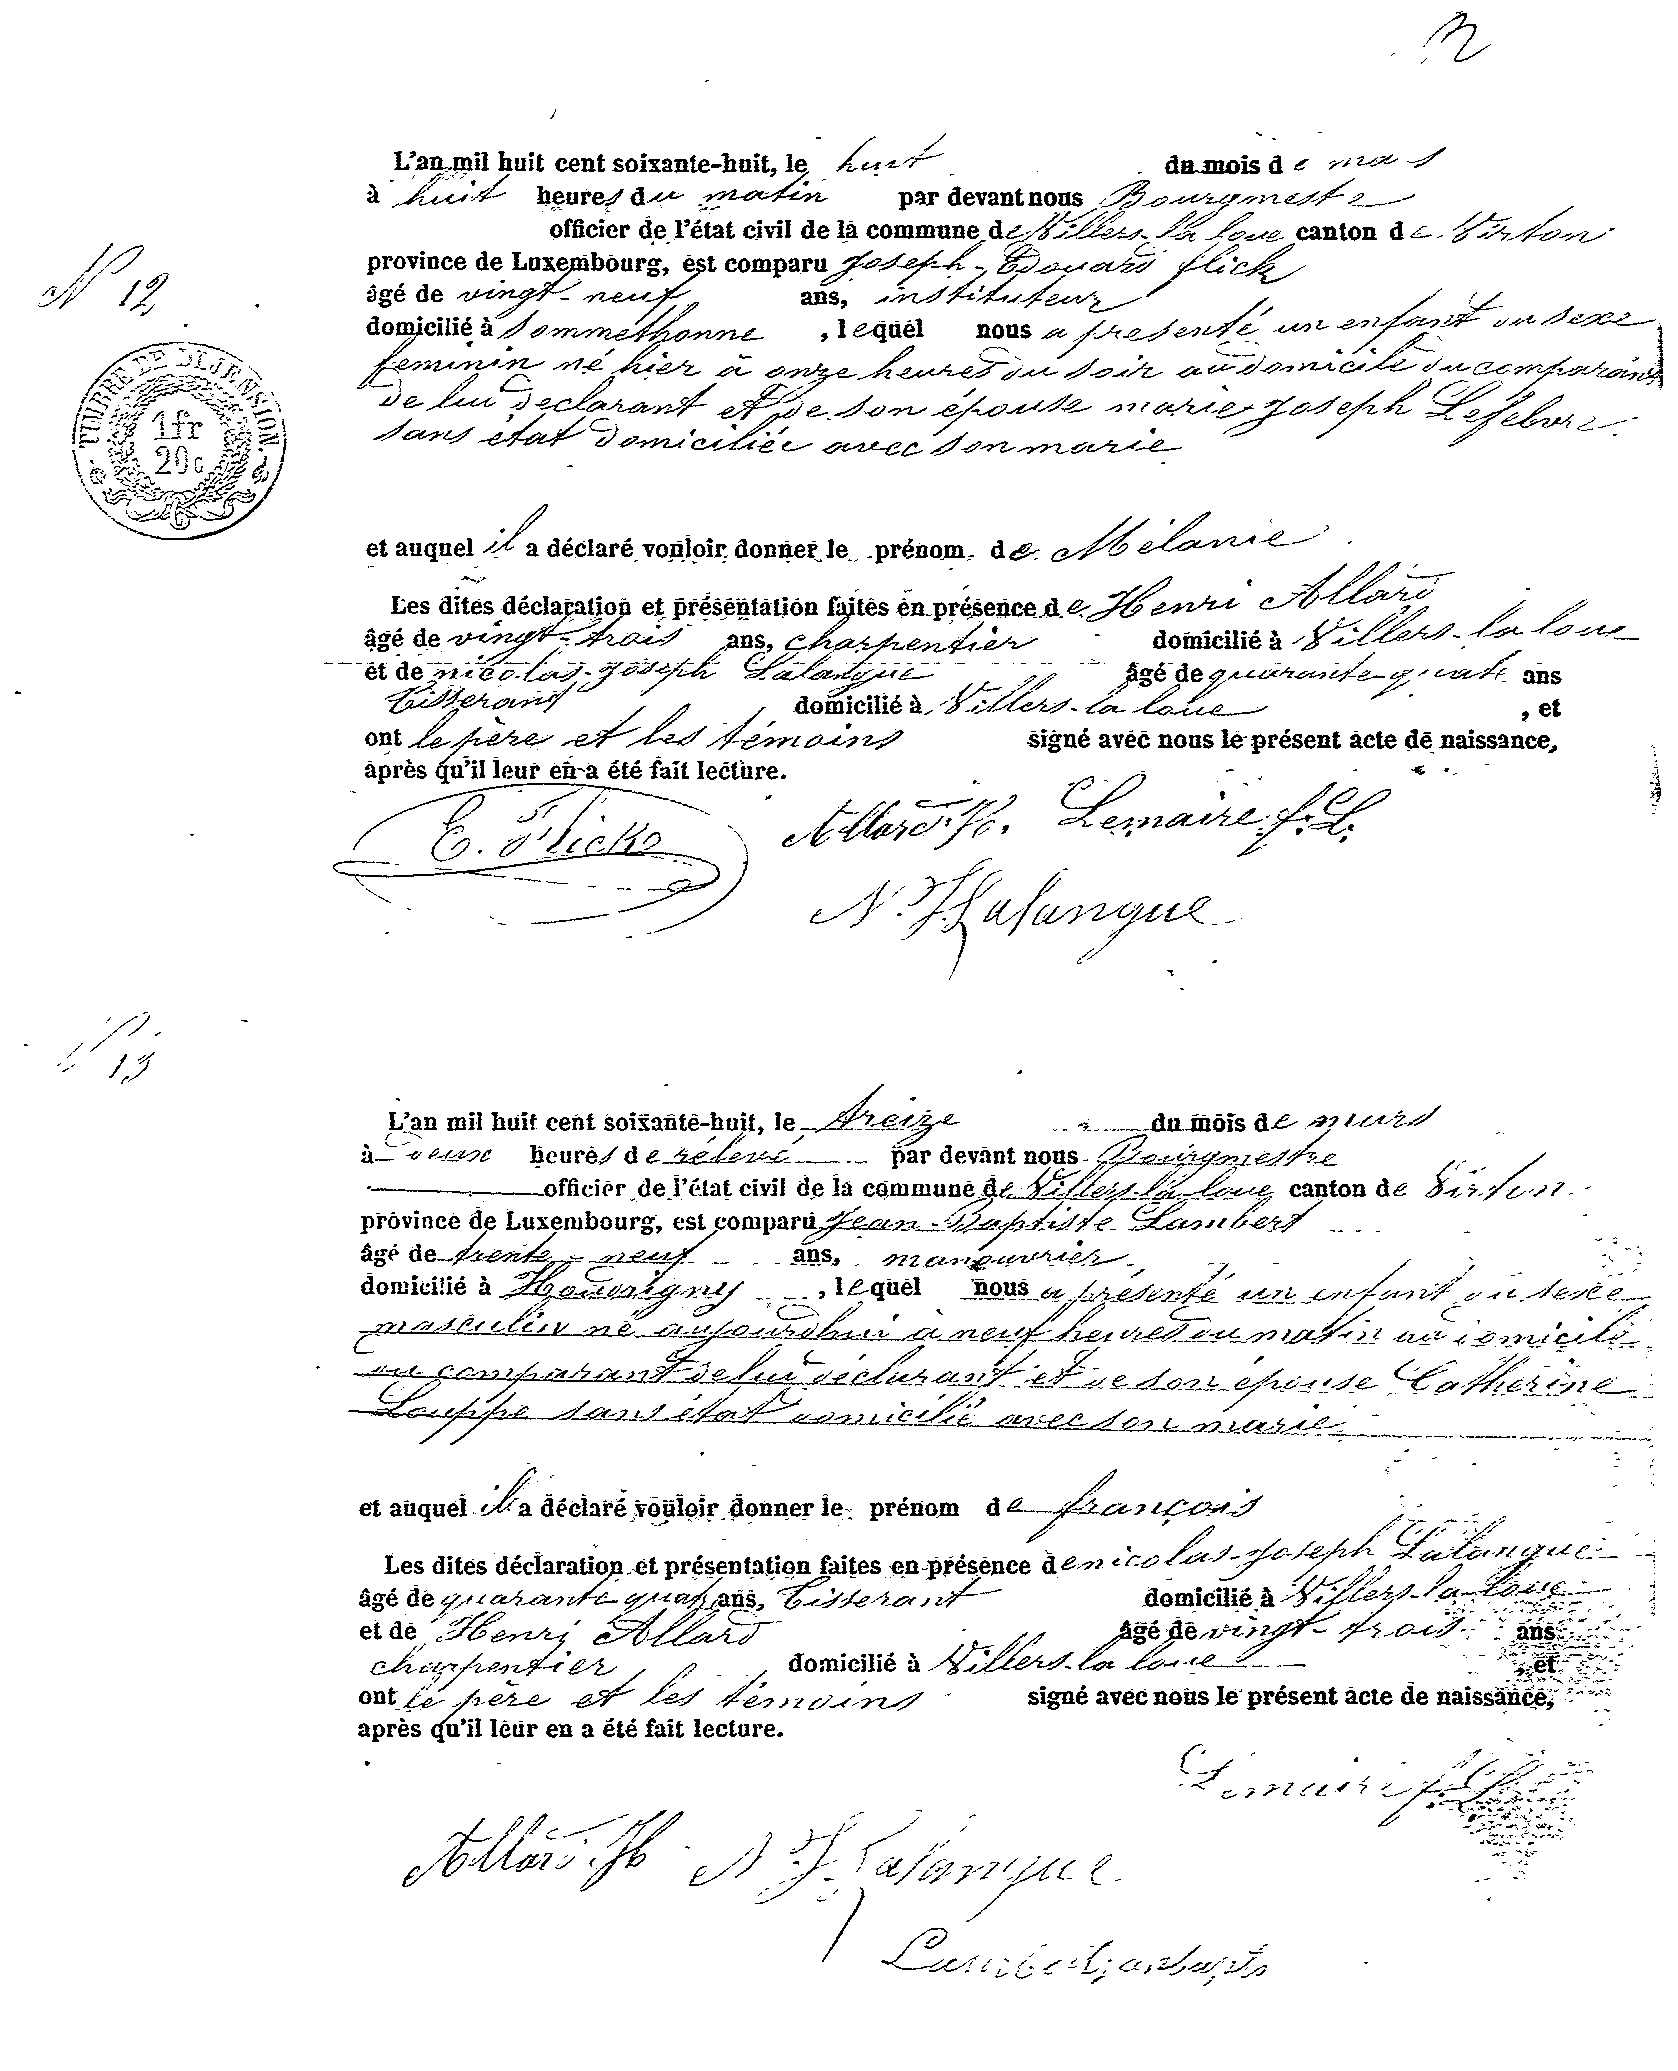 L'an mil huit cent soixante-huit, le huit du mois de mars
à huit heures du matin par devant nous Bourgmestre
officier de l'état civil de la commune de Villers-la loue canton de Virton
province de Luxembourg, est comparu Joseph-Edouard flick
N° 12
âgé de vingt-neuf ans, instituteur
domicilié à Sommethonne, lequel nous a presenté un enfant du sexe
feminin né hier à onze heures du soir au domicile du comparant
de lui declarant et de son épouse marie-Joseph Lefebvre
sans état domiciliée avec son marie
TIMBRE DE DIMENSION.
1 fr
20 c
et auquel il a déclaré vouloir donner le prénom de Mélanie
Les dites déclaration et présentation faites en présence de Henri Allard
âgé de vingt-trois ans, charpentier domicilié à Villers-la loue
et de nicolas-Joseph Lalangue âgé de quarante-quatre ans
Tisserand domicilié à Villers-la loue, et
ont le père et les témoins signé avec nous le présent acte de naissance,
après qu'il leur en a été fait lecture.
E. Flick Allard. H. Lemaire f. L.
N. J. Lalangue
N° 13
L'an mil huit cent soixante-huit, le treize du mois de mars
à deux heures de relevé par devant nous Bourgmestre
officier de l'état civil de la commune de Villers-la loue canton de Virton
province de Luxembourg, est comparu Jean-Baptiste Lambert
âgé de trente-neuf ans, manouvrier
domicilié à Houdrigny, lequel nous a présenté un enfant du sexe
masculin né aujourdhui à neuf heures du matin au domicile
du comparant de lui déclarant et de son épouse Catherine
Louppe sans état domicilié avec son marie
et auquel il a déclaré vouloir donner le prénom de françois
Les dites déclaration et présentation faites en présence de nicolas-Joseph Lalangue
âgé de quarante-quatr ans, Tisserant domicilié à Villers-la loue
et de Henri Allard âgé de vingt-trois ans
charpentier domicilié à Villers-la loue, et
ont le père et les témoins signé avec nous le présent acte de naissance,
après qu'il leur en a été fait lecture.
Lemaire f. L.
Allard. H N. J. Lalangue